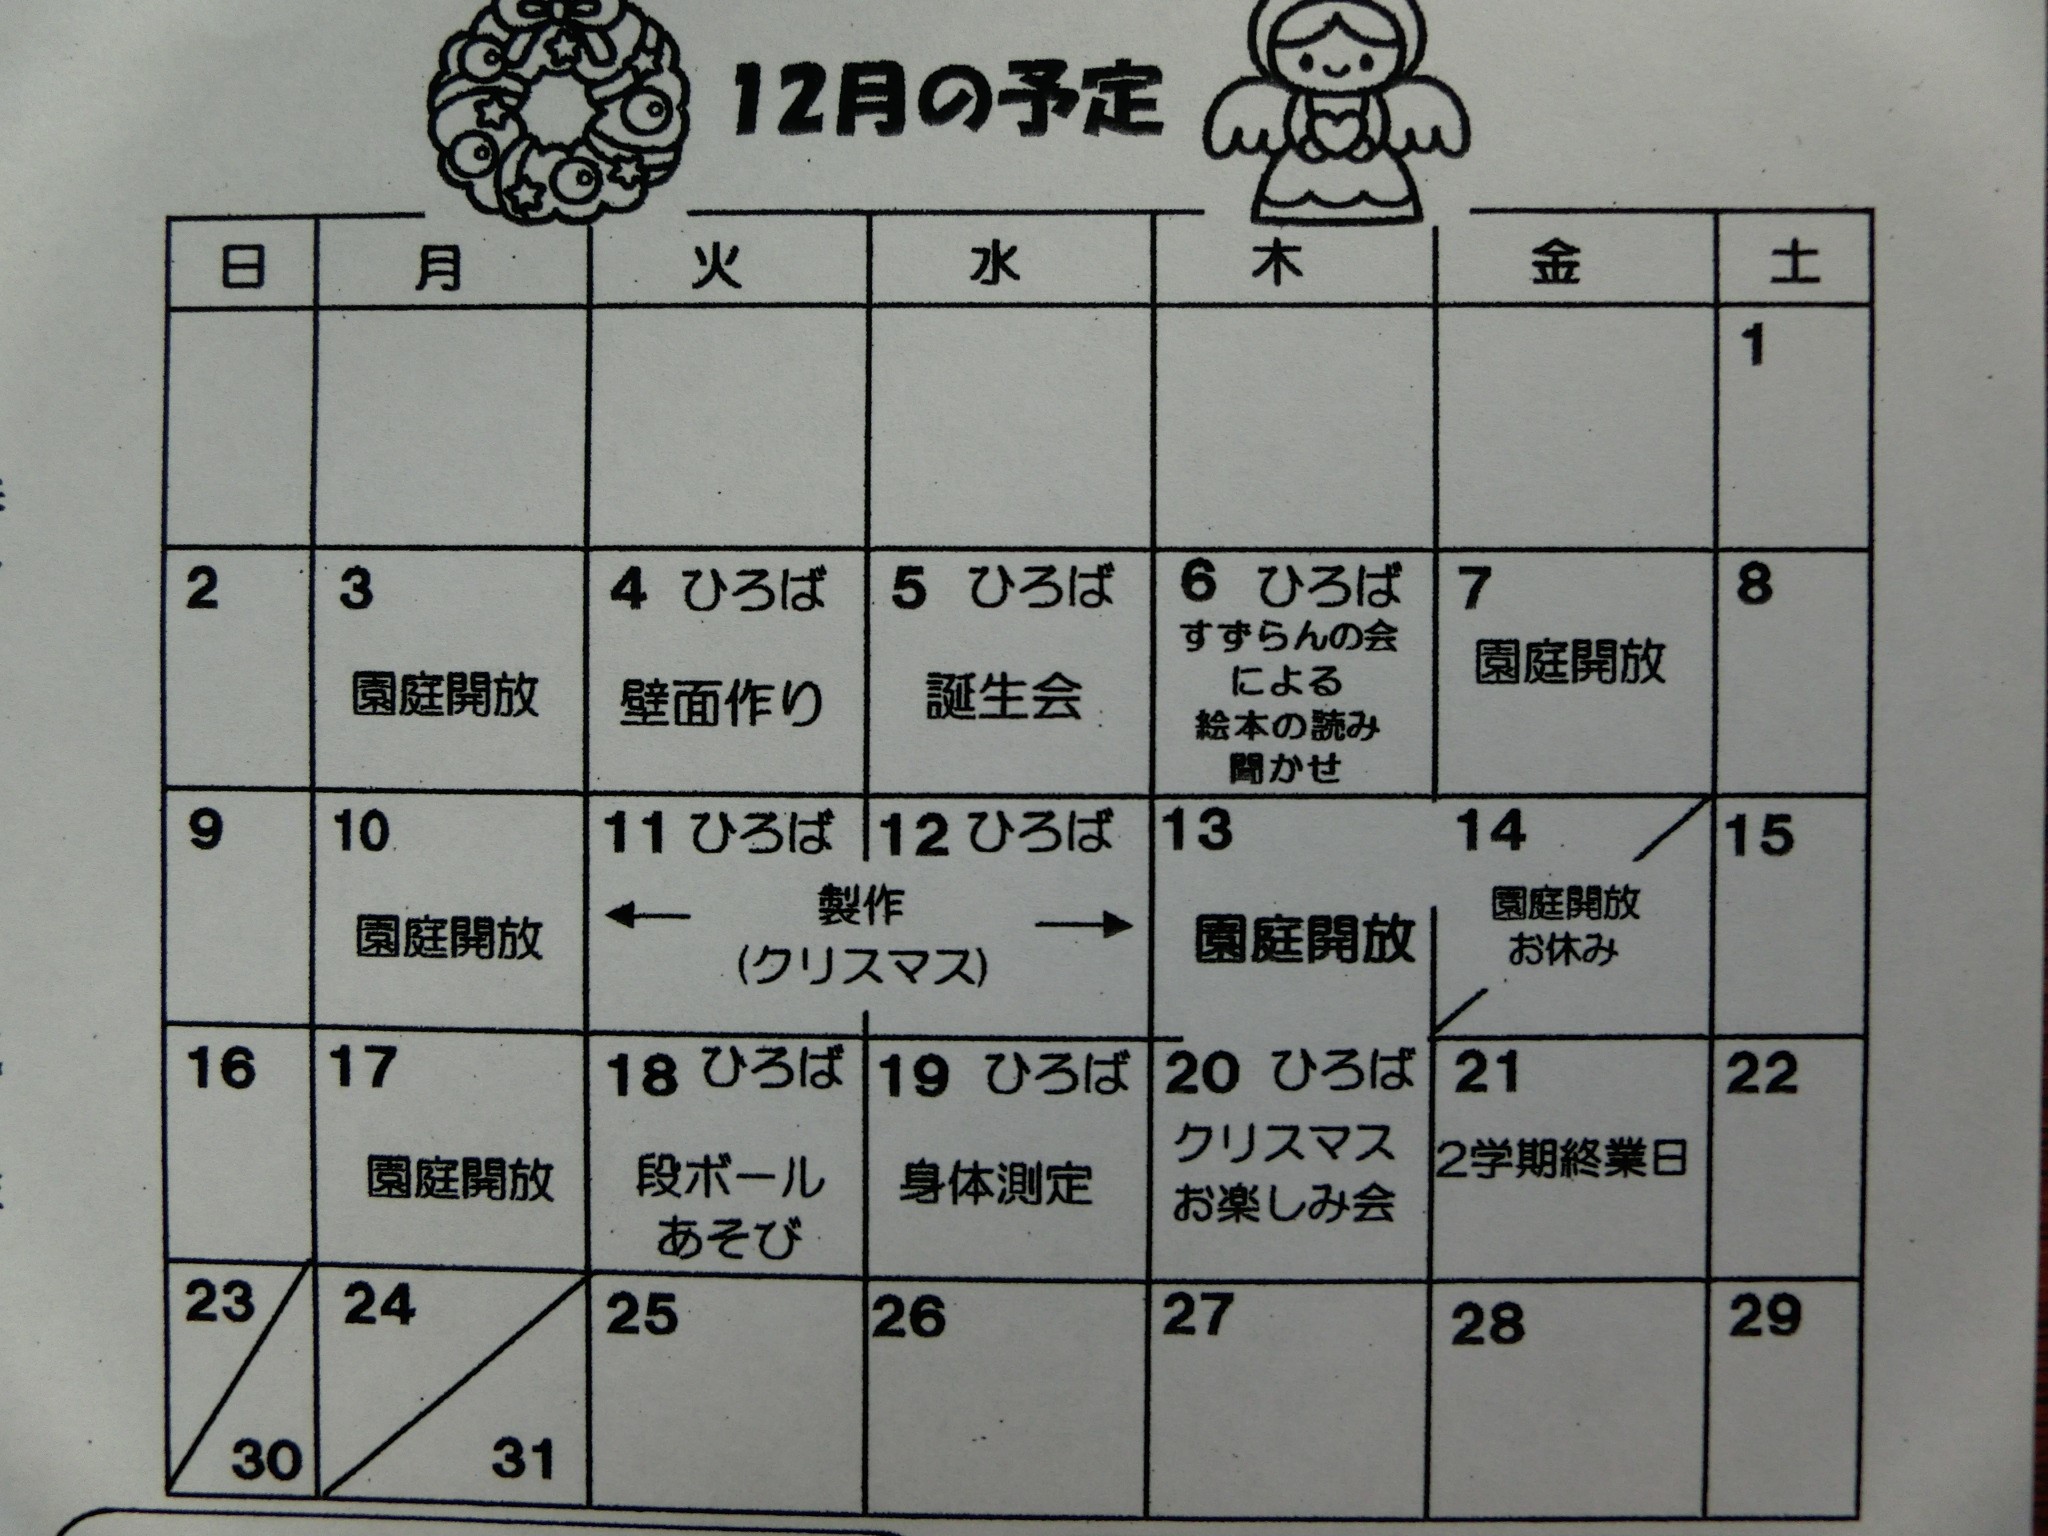 12月の予定
日 月 火 水 木 金 土
1
2 3 4 ひろば 5 ひろば 6 ひろば 7 8
園庭開放 壁面作り 誕生会 すずらんの会 園庭開放
による
絵本の読み
聞かせ
9 10 11 ひろば 12 ひろば 13 14 15
園庭開放 製作 園庭開放 園庭開放
(クリスマス) お休み
16 17 18 ひろば 19 ひろば 20 ひろば 21 22
園庭開放 段ボール 身体測定 クリスマス 2学期終業日
あそび お楽しみ会
23 24 25 26 27 28 29
30 31